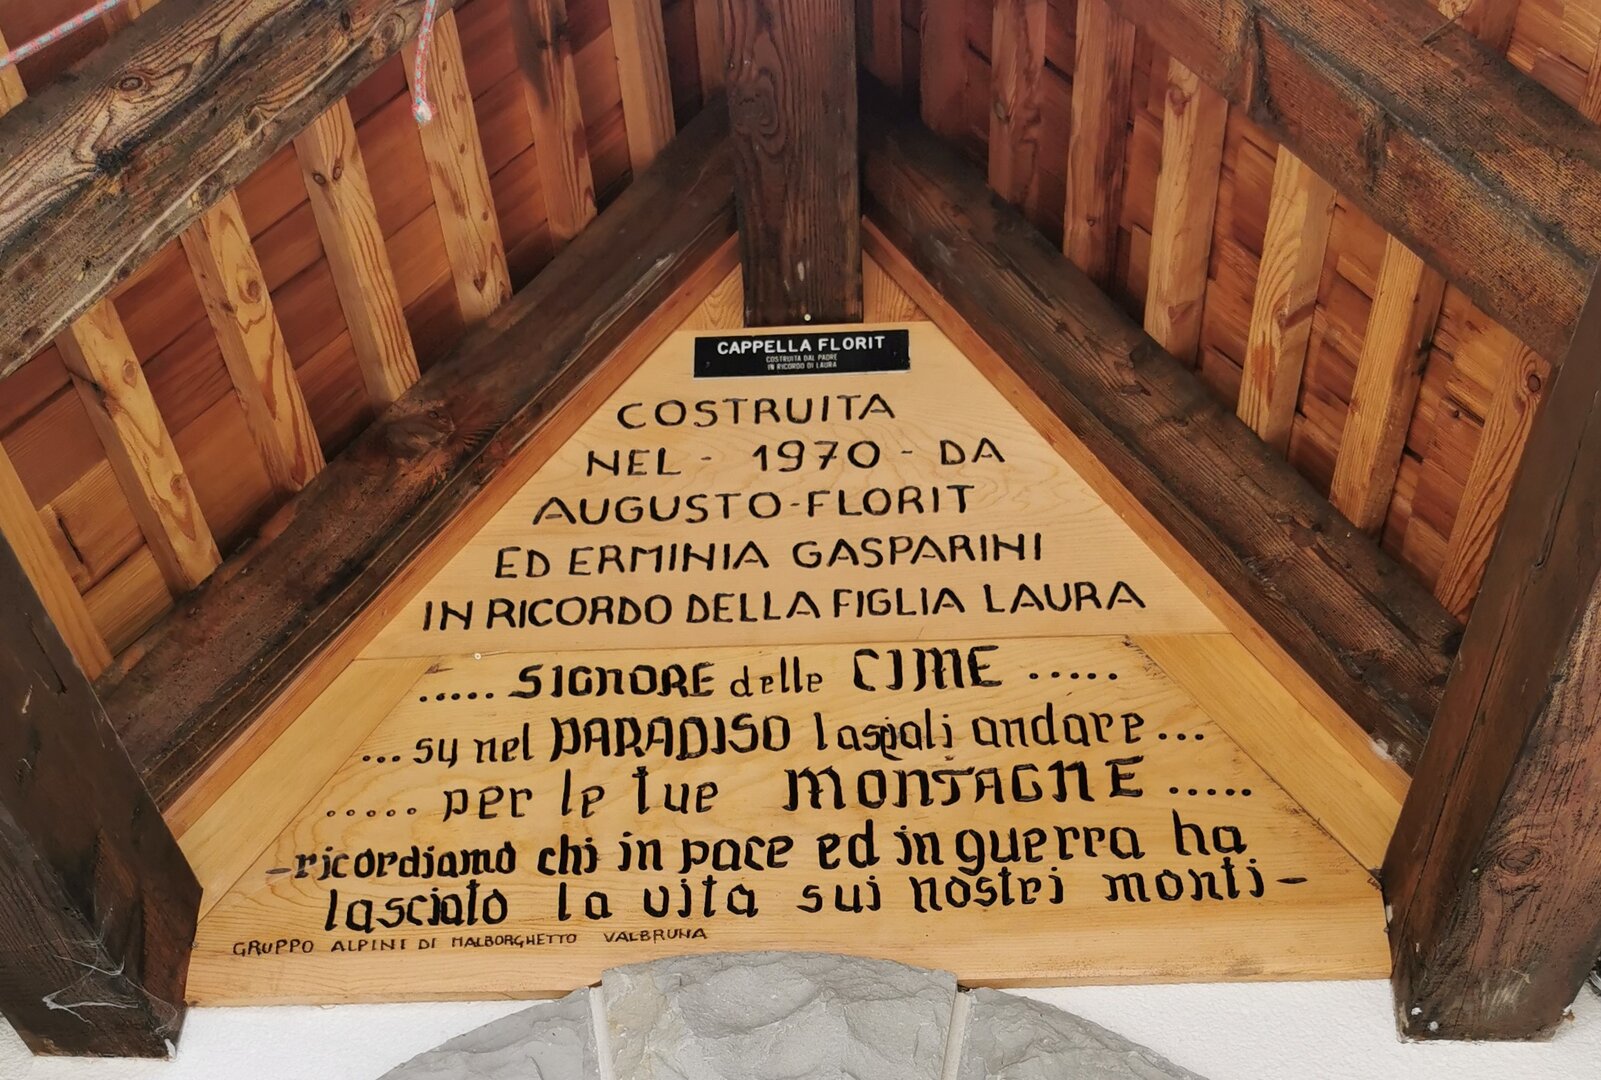 CAPPELLA FLORIT
COSTRUITA DAL PADRE
IN RICORDO DI LAURA
COSTRUITA
NEL - 1970 - DA
AUGUSTO-FLORIT
ED ERMINIA GASPARINI
IN RICORDO DELLA FIGLIA LAURA
..... SIGNORE delle CIME .....
... su nel PARADISO lasciali andare ...
..... per le tue MONTAGNE .....
-ricordiamo chi in pace ed in guerra ha
lasciato la vita sui nostri monti-
GRUPPO ALPINI DI MALBORGHETTO VALBRUNA